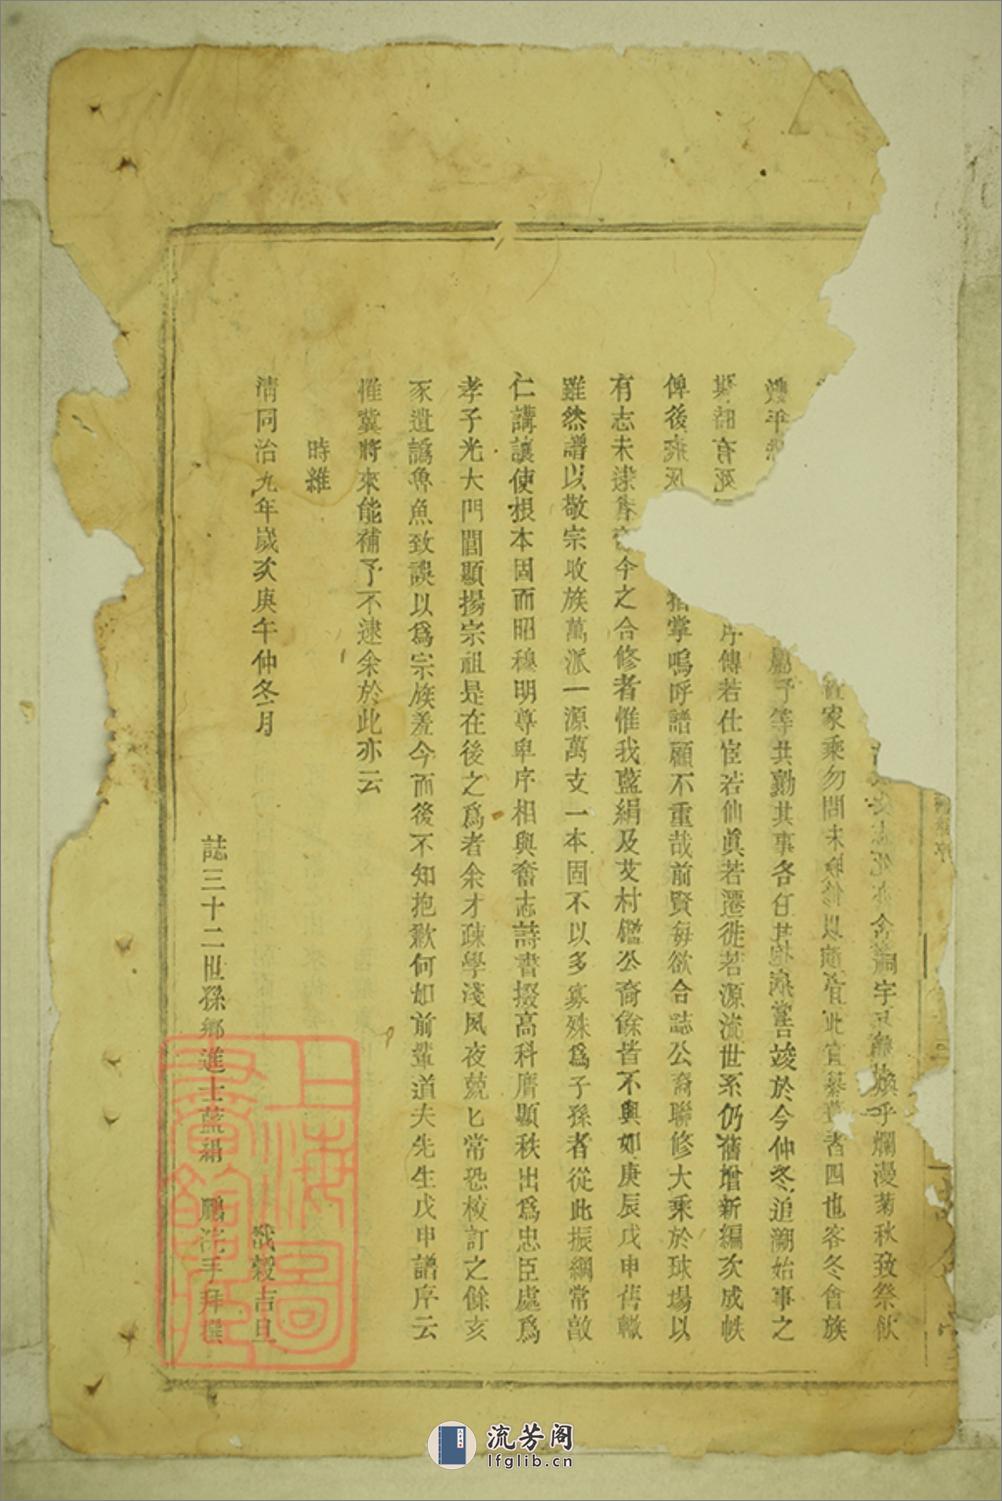 祠宇 煥乎爛漫菊秋致祭飲
家乘勿問未 修以 宜此宜纂 者四也客冬會族
數年 予等共勷其事各任其 竣於今仲冬追溯始事之
時有死 序傳若仕宦若仙眞若遷徙若源流世系仍舊增新編次成帙
俾後 指掌嗚呼譜顧不重哉前賢每欲合誌公裔聯修大乘於球場以
有志未逮者 今之合修者惟我藍絹及芆村鑑公裔餘皆不與如庚辰戊申舊轍
雖然譜以敬宗收族萬派一源萬支一本固不以多寡殊爲子孫者從此振綱常敵
仁講讓使根本固而昭穆明尊卑序相與奮志詩書掇高科膺顯秩出爲忠臣處爲
孝子光大門閭顯揚宗祖是在後之爲者余才疎學淺夙夜兢匕常恐校訂之餘亥
豕遺譌魯魚致誤以爲宗族羞今而後不知抱歉何如前輩道夫先生戊申譜序云
惟冀將來能補予不逮余於此亦云
時維
清同治九年歲次庚午仲冬月 戩穀吉旦
誌三十二世孫鄉進士藍絹 鵬 手拜撰
上海圖書館藏
流芳阁
lfglib.cn